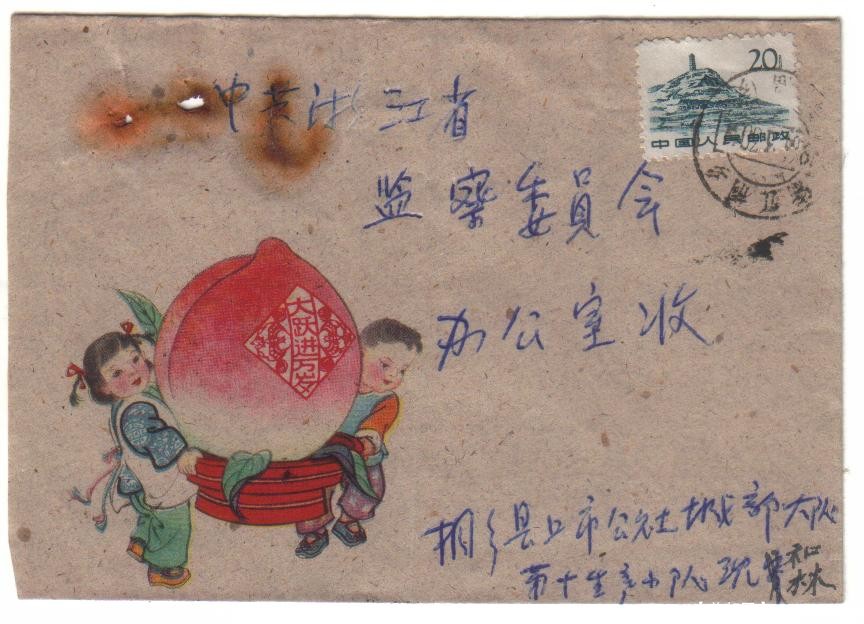 中共浙江省
20
中国人民邮政
监察委员会
办公室收
大跃进万岁
桐乡县上市公社城部大队
第十生产小队沈